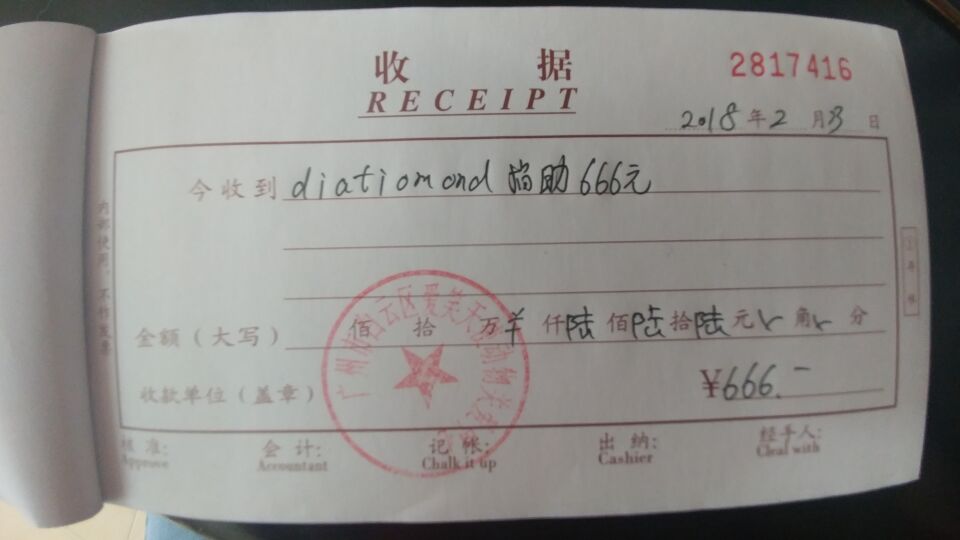 收 据
RECEIPT
2817416
2018年2月3日
今收到 diatiomond 捐助666元
金额（大写） 佰 拾 万¥仟陆佰陆拾陆元 角 分
收款单位（盖章） ¥666.-
核准: 会计: 记帐: 出纳: 经手人:
Approve Accountant Chalk it up Cashier Cleal with
内部使用，不作发票
广州市白云区爱笑天使动物